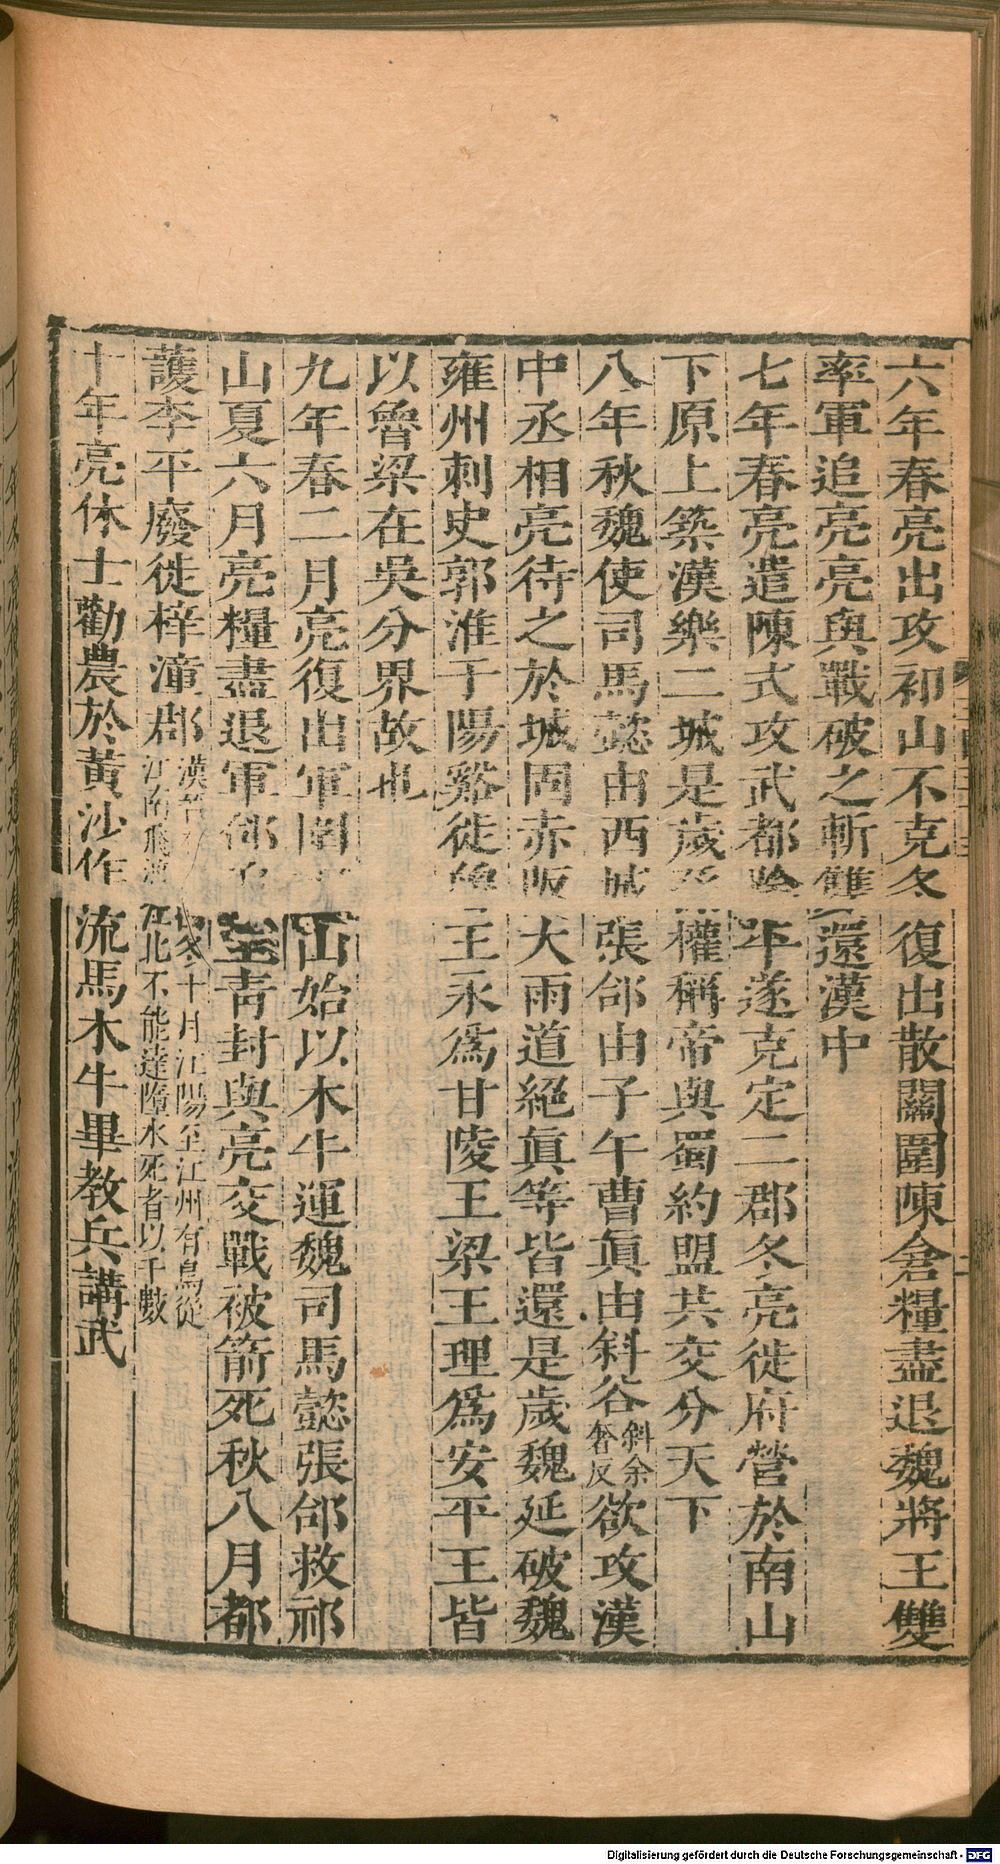 六年春亮出攻祁山不克冬復出散關圍陳倉糧盡退魏將王雙
率軍追亮亮與戰破之斬雙還漢中
七年春亮遣陳式攻武都陰平遂克定二郡冬亮徙府營於南山
下原上築漢樂二城是歲孫權稱帝與蜀約盟共交分天下
八年秋魏使司馬懿由西城張郃由子午曹眞由斜谷斜余奢反欲攻漢
中丞相亮待之於城固赤阪大雨道絕眞等皆還是歲魏延破魏
雍州刺史郭淮于陽谿徙魯王永爲甘陵王梁王理爲安平王皆
以魯梁在吳分界故也
九年春二月亮復出軍圍山始以木牛運魏司馬懿張郃救祁
山夏六月亮糧盡退軍郃至靑封與亮交戰被箭死秋八月都
護李平廢徙梓潼郡漢冬十月江陽至江州有鳥從江南飛渡江北不能達墮水死者以千數
十年亮休士勸農於黃沙作流馬木牛畢教兵講武
Digitalisierung gefördert durch die Deutsche Forschungsgemeinschaft - DFG